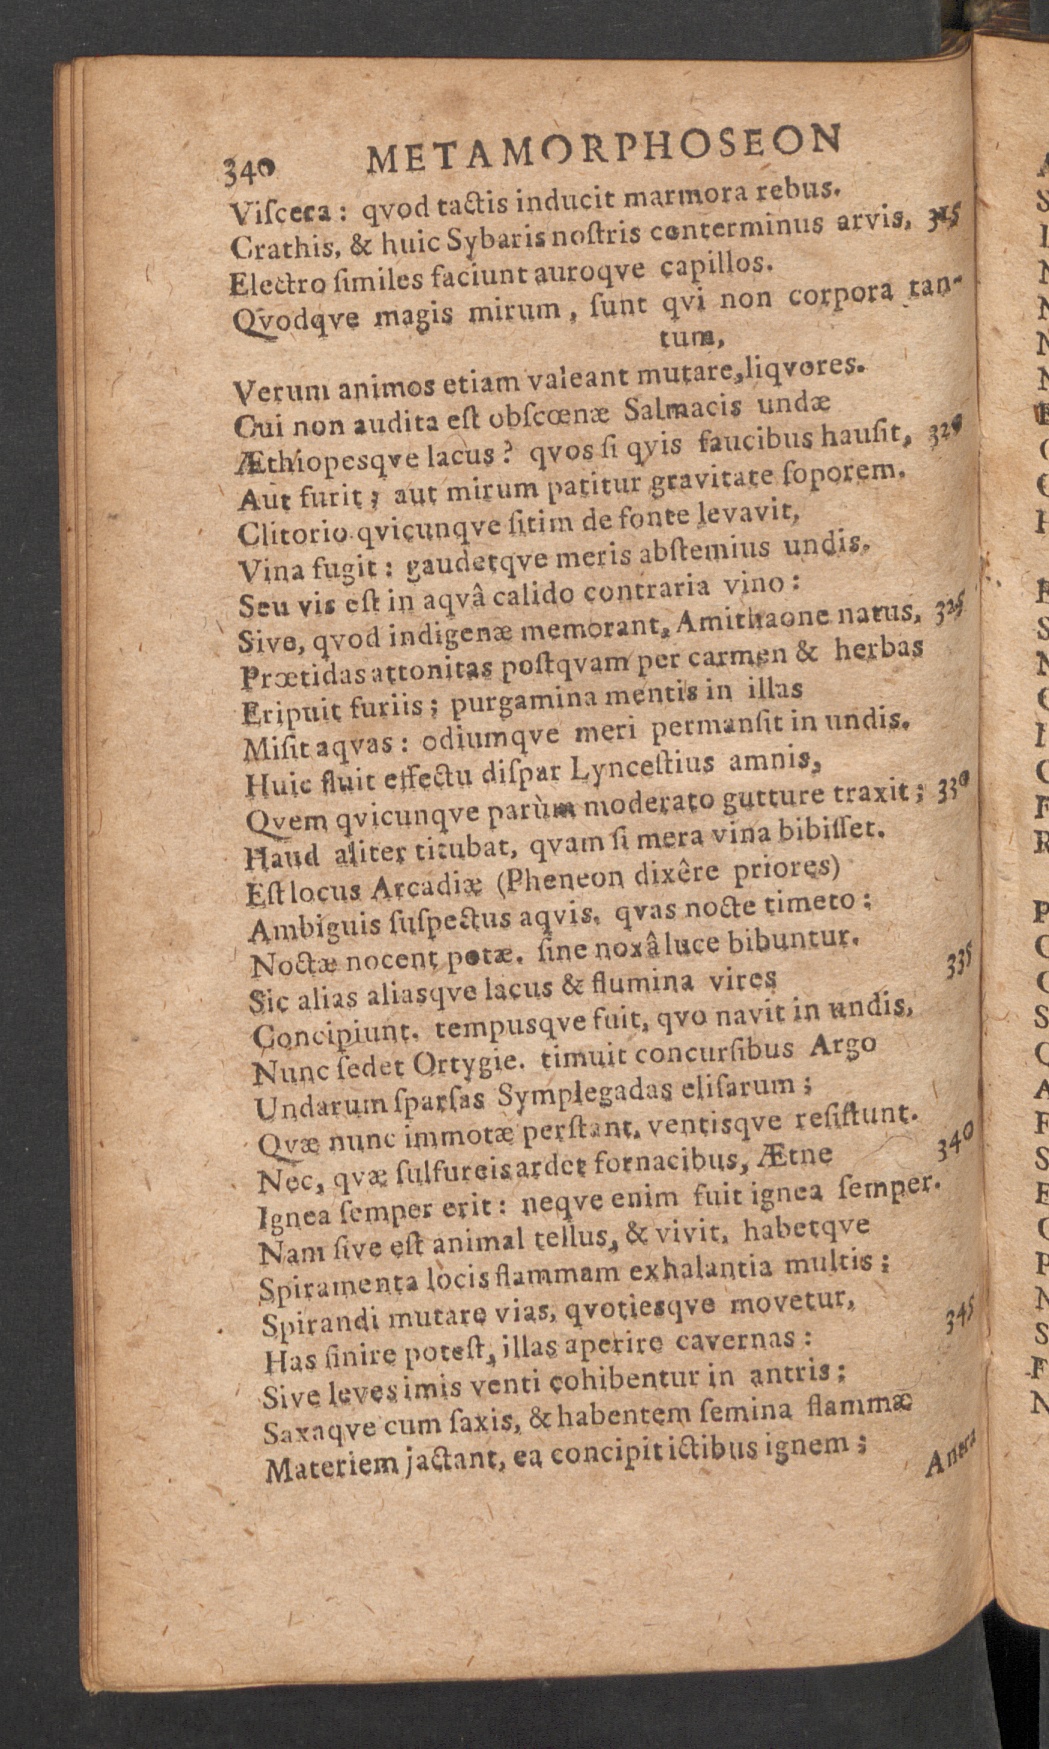 340 METAMORPHOSEON
Viſcera : qvod tactis inducit marmora rebus.
Crathis, & huic Sybaris noſtris conterminus arvis, 315
Electro ſimiles faciunt auroqve capillos.
Qvodqve magis mirum, ſunt qvi non corpora tan-
tum,
Verum animos etiam valeant mutare, liqvores.
Cui non audita eſt obſcœnæ Salmacis undæ
Æthiopesqve lacus? qvos ſi qvis faucibus hauſit, 320
Aut furit; aut mirum patitur gravitate ſoporem.
Clitorio qvicunqve ſitim de fonte levavit,
Vina fugit : gaudetqve meris abſtemius undis.
Seu vis eſt in aqvâ calido contraria vino :
Sive, qvod indigenæ memorant, Amithaone natus, 325
Prœtidas attonitas poſtqvam per carmen & herbas
Eripuit furiis; purgamina mentis in illas
Miſit aqvas : odiumqve meri permanſit in undis.
Huic fluit effectu diſpar Lynceſtius amnis,
Qvem qvicunqve parùm moderato gutture traxit; 330
Haud aliter titubat, qvam ſi mera vina bibiſſet.
Eſt locus Arcadiæ (Pheneon dixêre priores)
Ambiguis ſuſpectus aqvis, qvas nocte timeto :
Noctæ nocent potæ. ſine noxâ luce bibuntur.
Sic alias aliasqve lacus & flumina vires 335
Concipiunt. tempusqve fuit, qvo navit in undis,
Nunc ſedet Ortygie. timuit concurſibus Argo
Undarum ſparſas Symplegadas eliſarum;
Qvæ nunc immotæ perſtant, ventisqve reſiſtunt.
Nec, qvæ ſulfureis ardet fornacibus, Ætne 340
Ignea ſemper erit : neqve enim fuit ignea ſemper.
Nam ſive eſt animal tellus, & vivit, habetqve
Spiramenta locis flammam exhalantia multis;
Spirandi mutare vias, qvotiesqve movetur,
Has finire poteſt, illas aperire cavernas : 345
Sive leves imis venti cohibentur in antris;
Saxaqve cum ſaxis, & habentem ſemina flammæ
Materiem jactant, ea concipit ictibus ignem;
Antra